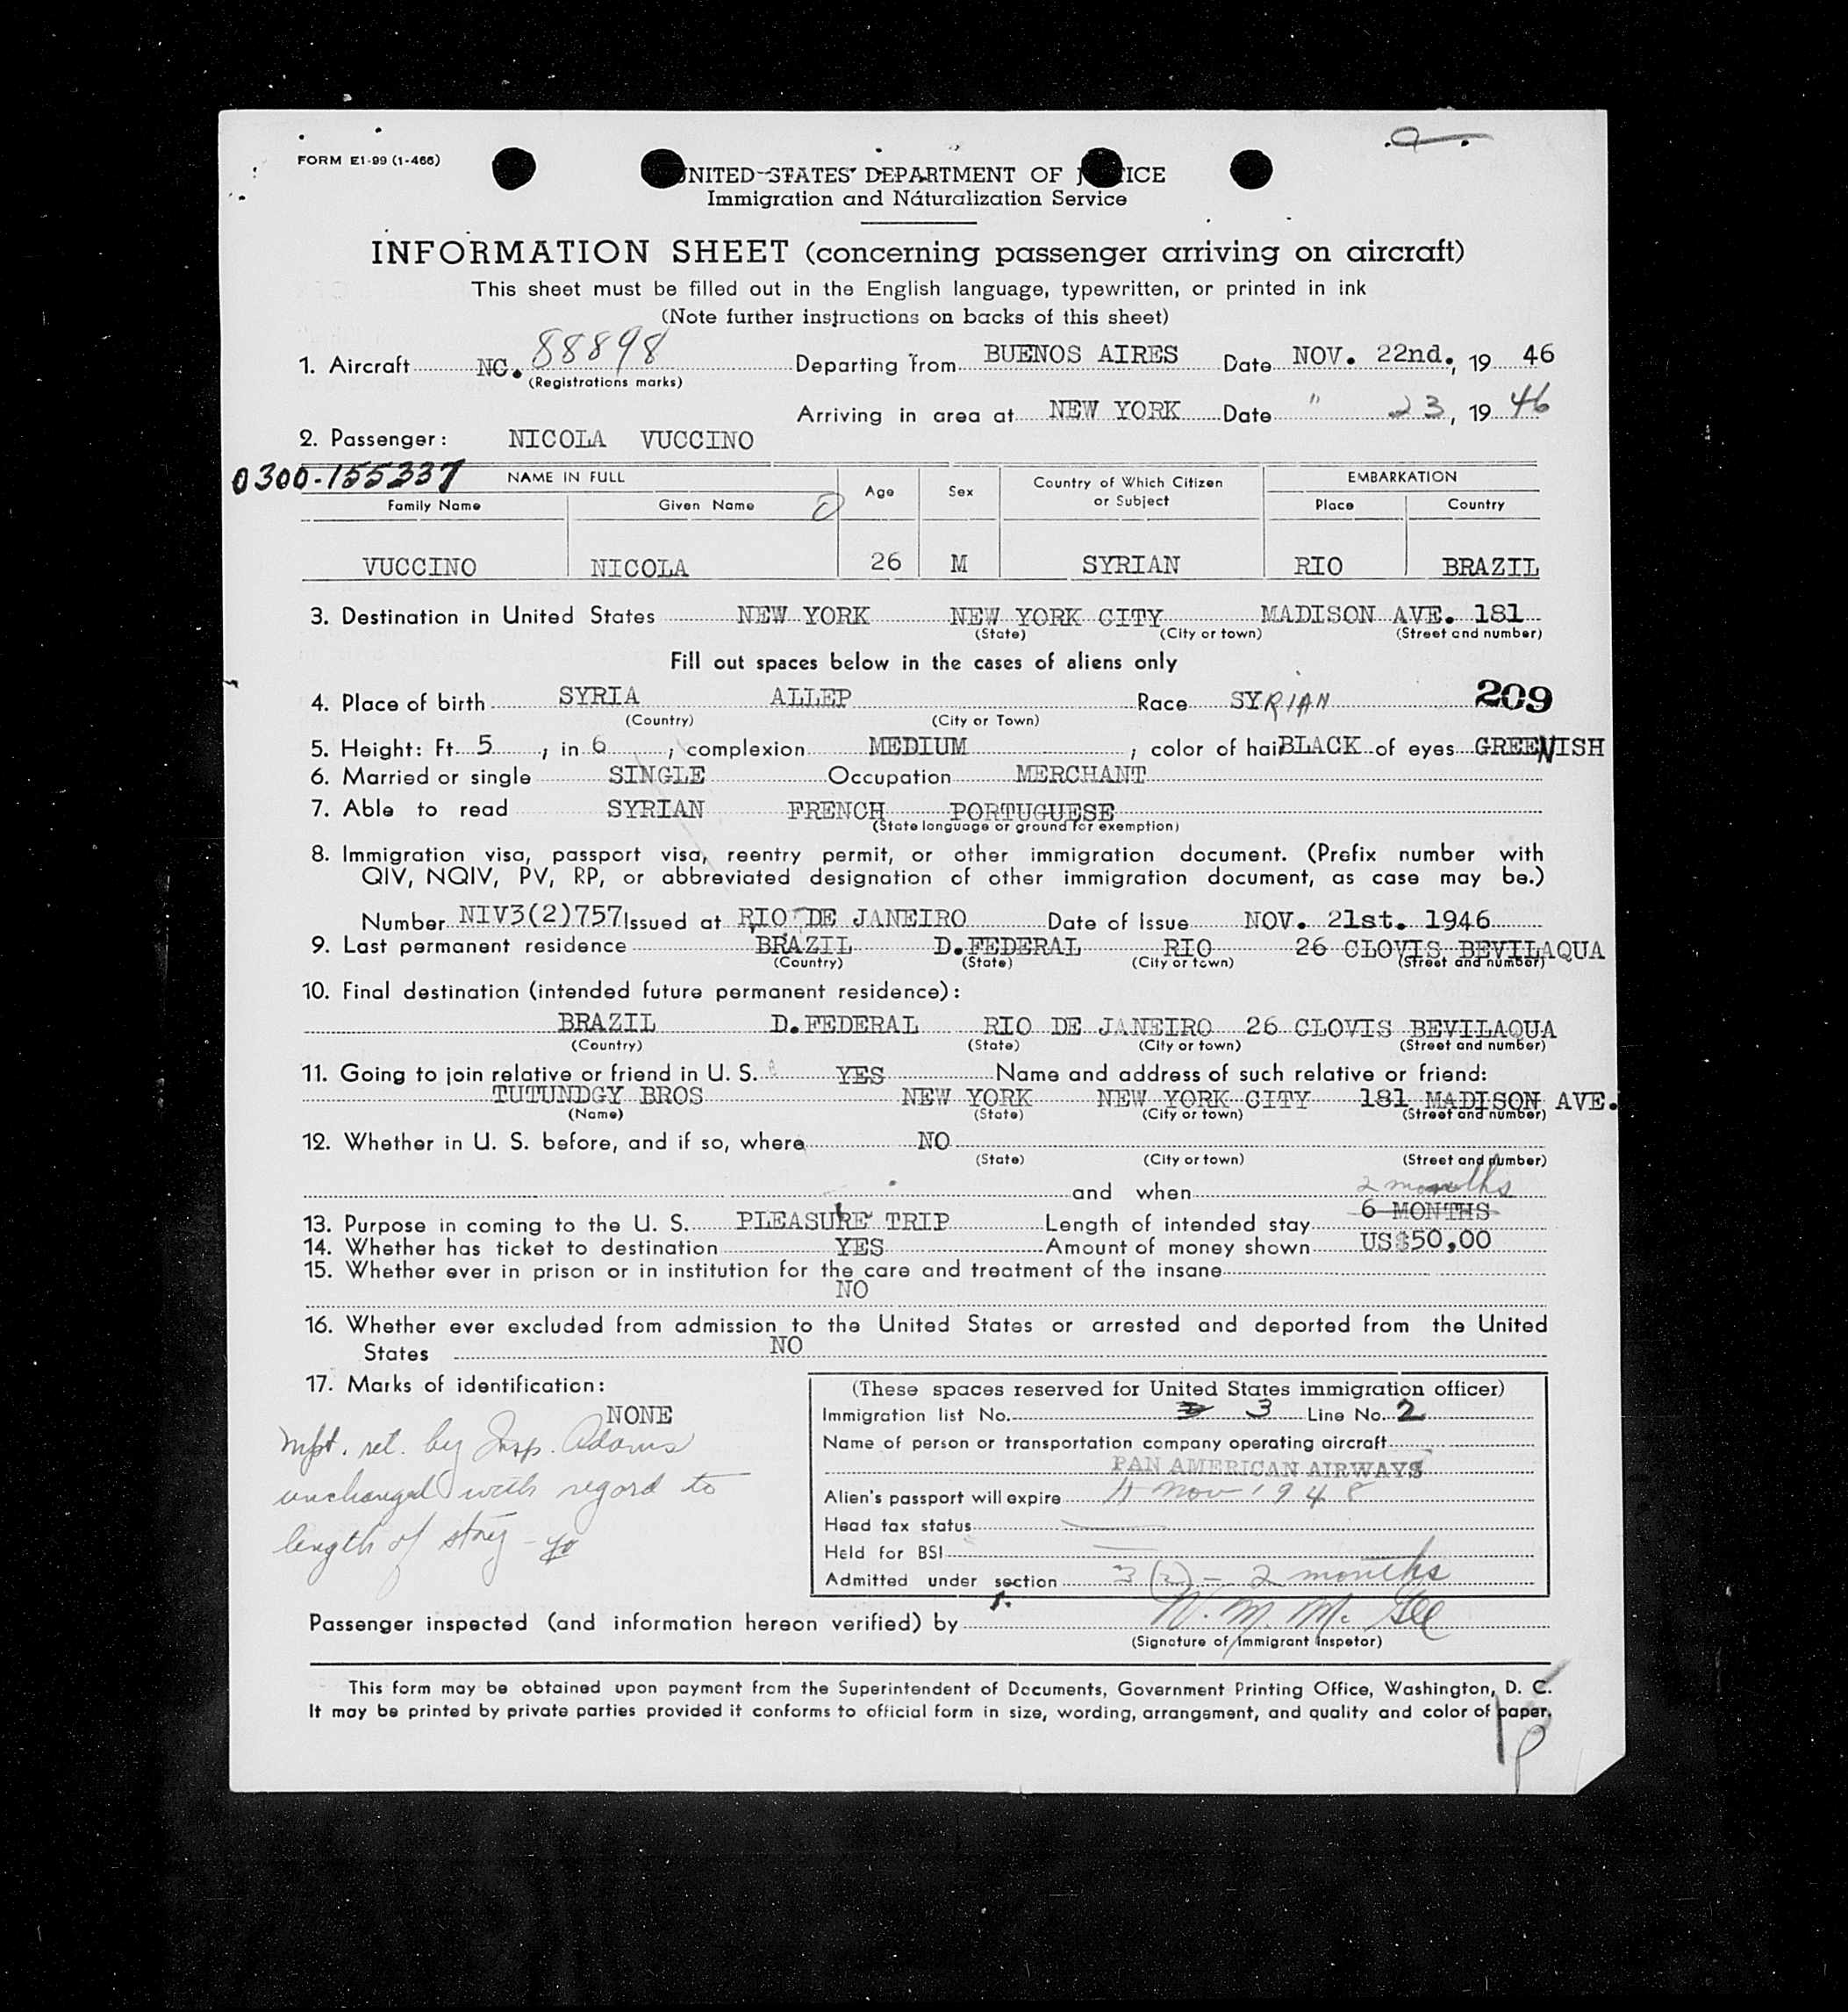 FORM E1-99 (1-466)
UNITED STATES DEPARTMENT OF J TICE
Immigration and Naturalization Service
INFORMATION SHEET (concerning passenger arriving on aircraft)
This sheet must be filled out in the English language, typewritten, or printed in ink
(Note further instructions on backs of this sheet)
1. Aircraft NC. 88898 Departing from BUENOS AIRES Date NOV. 22nd., 19 46
(Registrations marks)
Arriving in area at NEW YORK Date " 23, 19 46
2. Passenger: NICOLA VUCCINO
0300-155337 NAME IN FULL Age Sex Country of Which Citizen or Subject EMBARKATION
Family Name Given Name Place Country
VUCCINO NICOLA 26 M SYRIAN RIO BRAZIL
3. Destination in United States NEW YORK NEW YORK CITY MADISON AVE. 181
(State) (City or town) (Street and number)
Fill out spaces below in the cases of aliens only
4. Place of birth SYRIA ALLEP Race SYRIAN 209
(Country) (City or Town)
5. Height: Ft. 5, in 6, complexion MEDIUM, color of hair BLACK of eyes GREENISH
6. Married or single SINGLE Occupation MERCHANT
7. Able to read SYRIAN FRENCH PORTUGUESE
(State language or ground for exemption)
8. Immigration visa, passport visa, reentry permit, or other immigration document. (Prefix number with
QIV, NQIV, PV, RP, or abbreviated designation of other immigration document, as case may be.)
Number NIV3(2)757 Issued at RIO DE JANEIRO Date of Issue NOV. 21st. 1946
9. Last permanent residence BRAZIL D.FEDERAL RIO 26 CLOVIS BEVILAQUA
(Country) (State) (City or town) (Street and number)
10. Final destination (intended future permanent residence):
BRAZIL D.FEDERAL RIO DE JANEIRO 26 CLOVIS BEVILAQUA
(Country) (State) (City or town) (Street and number)
11. Going to join relative or friend in U. S. YES Name and address of such relative or friend:
TUTUNDGY BROS NEW YORK NEW YORK CITY 181 MADISON AVE.
(Name) (State) (City or town) (Street and number)
12. Whether in U. S. before, and if so, where NO
(State) (City or town) (Street and number)
and when 2 months
13. Purpose in coming to the U. S. PLEASURE TRIP Length of intended stay 6 MONTHS
14. Whether has ticket to destination YES Amount of money shown US$50,00
15. Whether ever in prison or in institution for the care and treatment of the insane
NO
16. Whether ever excluded from admission to the United States or arrested and deported from the United
States NO
17. Marks of identification:
NONE
ret. by Insp. Adams
unchanged with regard to
length of stay
(These spaces reserved for United States immigration officer)
Immigration list No. 3 Line No. 2
Name of person or transportation company operating aircraft
PAN AMERICAN AIRWAYS
Alien's passport will expire Nov 1948
Head tax status
Held for BSI
Admitted under section 3 (2) - 2 months
Passenger inspected (and information hereon verified) by W. M. McGee
(Signature of Immigrant Inspetor)
This form may be obtained upon payment from the Superintendent of Documents, Government Printing Office, Washington, D. C.
It may be printed by private parties provided it conforms to official form in size, wording, arrangement, and quality and color of paper.